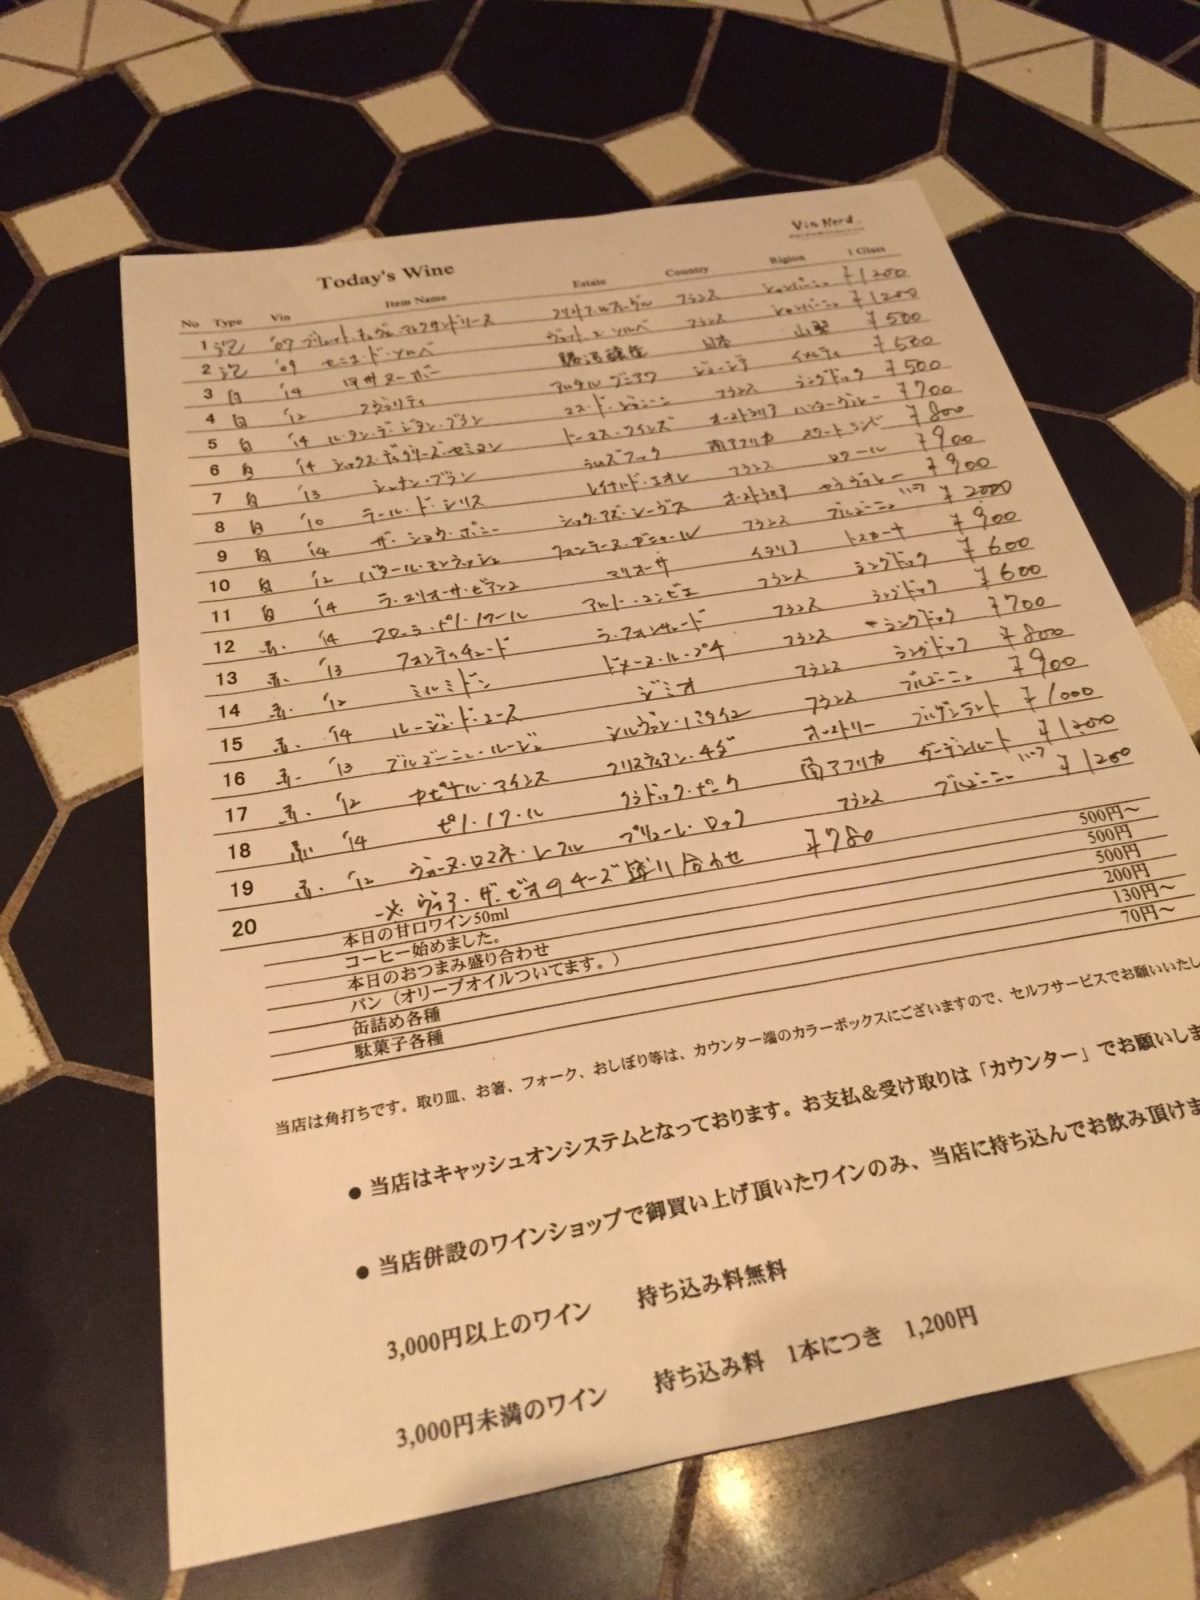 Vin Nerd
Today's Wine
No Type Vin Item Name Estate Country Rigion 1 Glass
1 泡 '07 フランス シャンパーニュ ¥1200
2 泡 '09 セニョ・ド・ソルベ ヴェット・エ・ソルベ フランス シャンパーニュ ¥1200
3 白 '14 甲州ヌーボー 勝沼醸造 日本 山梨 ¥500
4 白 '12 ジョージア イメレティ ¥500
5 白 '14 ル・タン・デ・ジタン・ブラン フランス ラングドック ¥500
6 白 '14 シックス・ディグリーズ・セミヨン トーマス・ワインズ オーストラリア ハンターヴァレー ¥700
7 白 '13 シュナン・ブラン 南アフリカ スワートランド ¥800
8 白 '10 テール・ド・シリス レイナルド・エオレ フランス ロワール ¥900
9 白 '14 ザ・ショウ・ポニー オーストラリア ヤラヴァレー ¥900
10 白 '12 バタール・モンラッシェ フォンテーヌ・ガニャール フランス ブルゴーニュ ハーフ ¥2000
11 白 '14 ラ・マリオーザ・ビアンコ マリオーザ イタリア トスカーナ ¥900
12 赤 '14 フローラ・ピノ・ノワール フランス ラングドック ¥600
13 赤 '13 フォンティチュード ラ・フォンチュード フランス ラングドック ¥600
14 赤 '12 ミルミドン ドメーヌ・ル・プチ フランス ラングドック ¥700
15 赤 '14 ルージュ・ド・コース ジミオ フランス ラングドック ¥800
16 赤 '13 ブルゴーニュ・ルージュ シルヴァン・パタイユ フランス ブルゴーニュ ¥900
17 赤 '12 カピテル・マインス クリスティアン・チダ オーストリー ブルゲンラント ¥1000
18 赤 '14 ピノ・ノワール クラドック・ピーク 南アフリカ ガーデンルート ¥1200
19 赤 '12 ヴォーヌ・ロマネ・レ・ズル プリューレ・ロック フランス ブルゴーニュ ハーフ ¥1200
20 チーズ盛り合わせ ¥780
本日の甘口ワイン50ml 500円～
コーヒー始めました。 500円
本日のおつまみ盛り合わせ 500円
パン（オリーブオイルついてます。） 200円
缶詰め各種 130円～
駄菓子各種 70円～
当店は角打ちです。取り皿、お箸、フォーク、おしぼり等は、カウンター端のカラーボックスにございますので、セルフサービスでお願いいたし
● 当店はキャッシュオンシステムとなっております。お支払&受け取りは「カウンター」でお願いしま
● 当店併設のワインショップで御買い上げ頂いたワインのみ、当店に持ち込んでお飲み頂けま
3,000円以上のワイン 持ち込み料無料
3,000円未満のワイン 持ち込み料 1本につき 1,200円